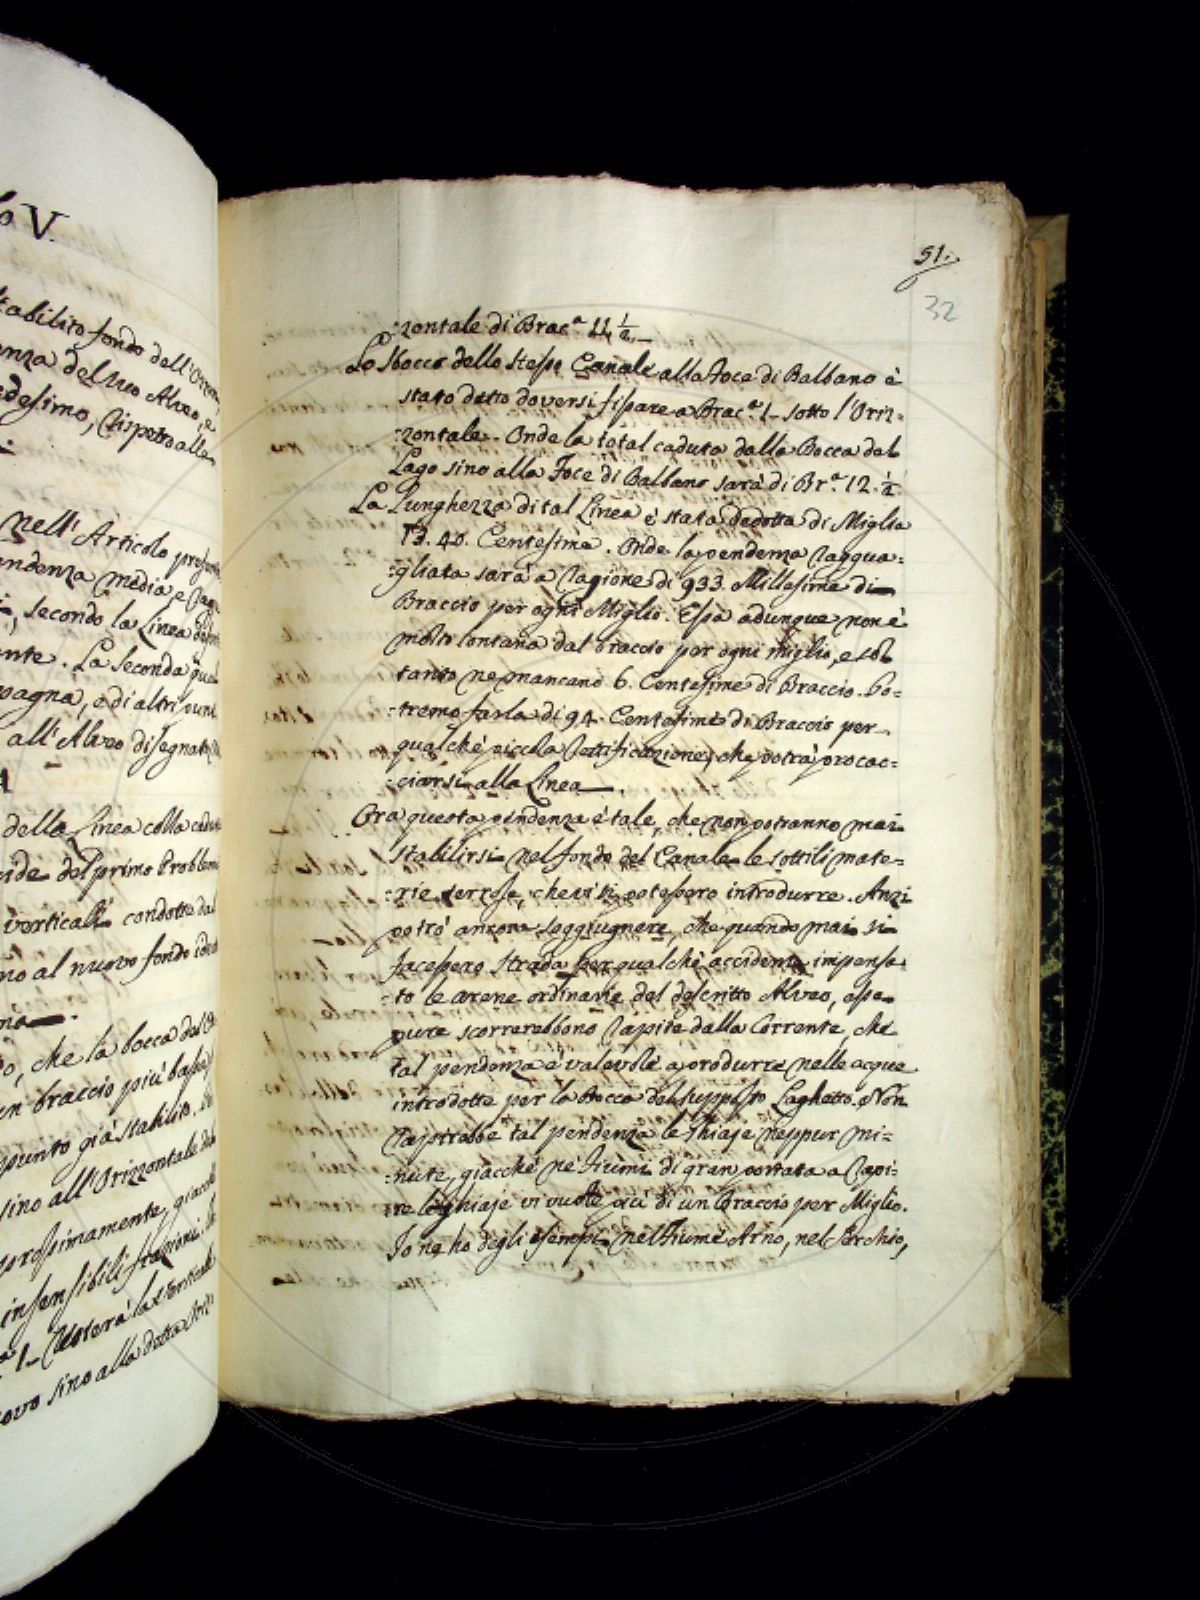 lo V.
stabilito fondo dell'Orizon
enza del suo Alveo, e
edesimo, rispetto alla
nell'Articolo presente
endenza media e rag
secondo la Linea
ente. La seconda quel
pagna, e di altri punt
all'Alveo disegnato
della Linea colla cadu
cide del primo Problem
verticali condotte dal
no al nuovo fondo
o, che la bocca del
un braccio più bassa
punto già stabilito.
sino all'Orizzontale del
prossimamente, giacchè
insensibili frazioni.
1_ Resterà la verticale
ovo sino alla detta Oriz
51.
32
:zontale di Brac.ª 11 ½_
Lo Sbocco dello stesso Canale alla Foce di Balbano è
stato detto doversi fissare a Brac.ª 1_ sotto l'Oriz=
:zontale. Onde la total caduta dalla Bocca del
Lago sino alla Foce di Balbano sarà di Br.ª 12. ½
La Lunghezza di tal Linea è stata dedotta di Miglia
13. 40. Centesime. Onde la pendenza raggua=
:gliata sarà a ragione di 933 Millesime di
Braccio per ogni Miglio. Essa adunque non è
molto lontana dal braccio per ogni miglio, e sol
tanto ne mancano 6. Centesime di Braccio. Po=
:tremo farla di 94. Centesime di Braccio per
qualche piccola rettificazione, che potrà procac=
:ciarsi alla Linea.
Ora questa pendenza è tale, che non potranno mai
stabilirsi nel fondo del Canale le sottili mate=
:rie terrose, che vi si potessero introdurre. Anzi
potrò ancora soggiugnere, che quando mai si
facessero strada per qualche accidente impensa=
:to le arene ordinarie del descritto Alveo, esse
pure scorrerebbono rapite dalla Corrente, che
tal pendenza è valevole a produrre nelle acque
introdotte per la Bocca del supposto Laghetto. Non
rapirebbe tal pendenza le Ghiaje neppur mi=
:nute, giacchè ne' Fiumi di gran portata a rapi=
:re le ghiaje vi vuole più di un Braccio per Miglio.
Io ne ho degli esempi nel Fiume Arno, nel Serchio,